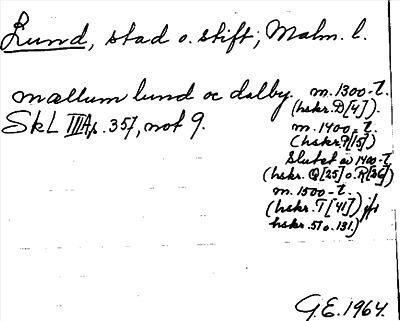 Lund, stad o. stift; Malm. l.
mællum lund oc dalby. m. 1300-t.
(hskr. D[4]).
SkL III Ap. 357, not 9.
m. 1400-t.
(hskr. P[15])
Slutet av 1400-t.
(hskr. Q[25] o. R[36])
m. 1500-t.
(hskr. T[41]) jfr
hskr. 51 o. 131.)
G.E. 1964.